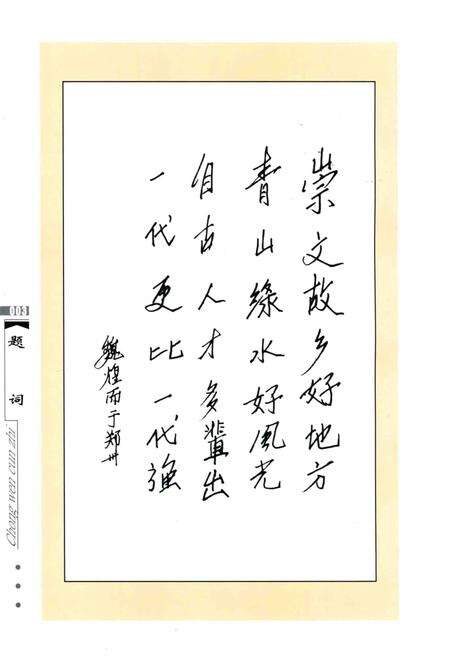 崇文故乡好地方
青山緣水好风光
自古人才多輩出
一代更比一代强
魏煌而于郑州
003
题词
Chong wen cun zhi